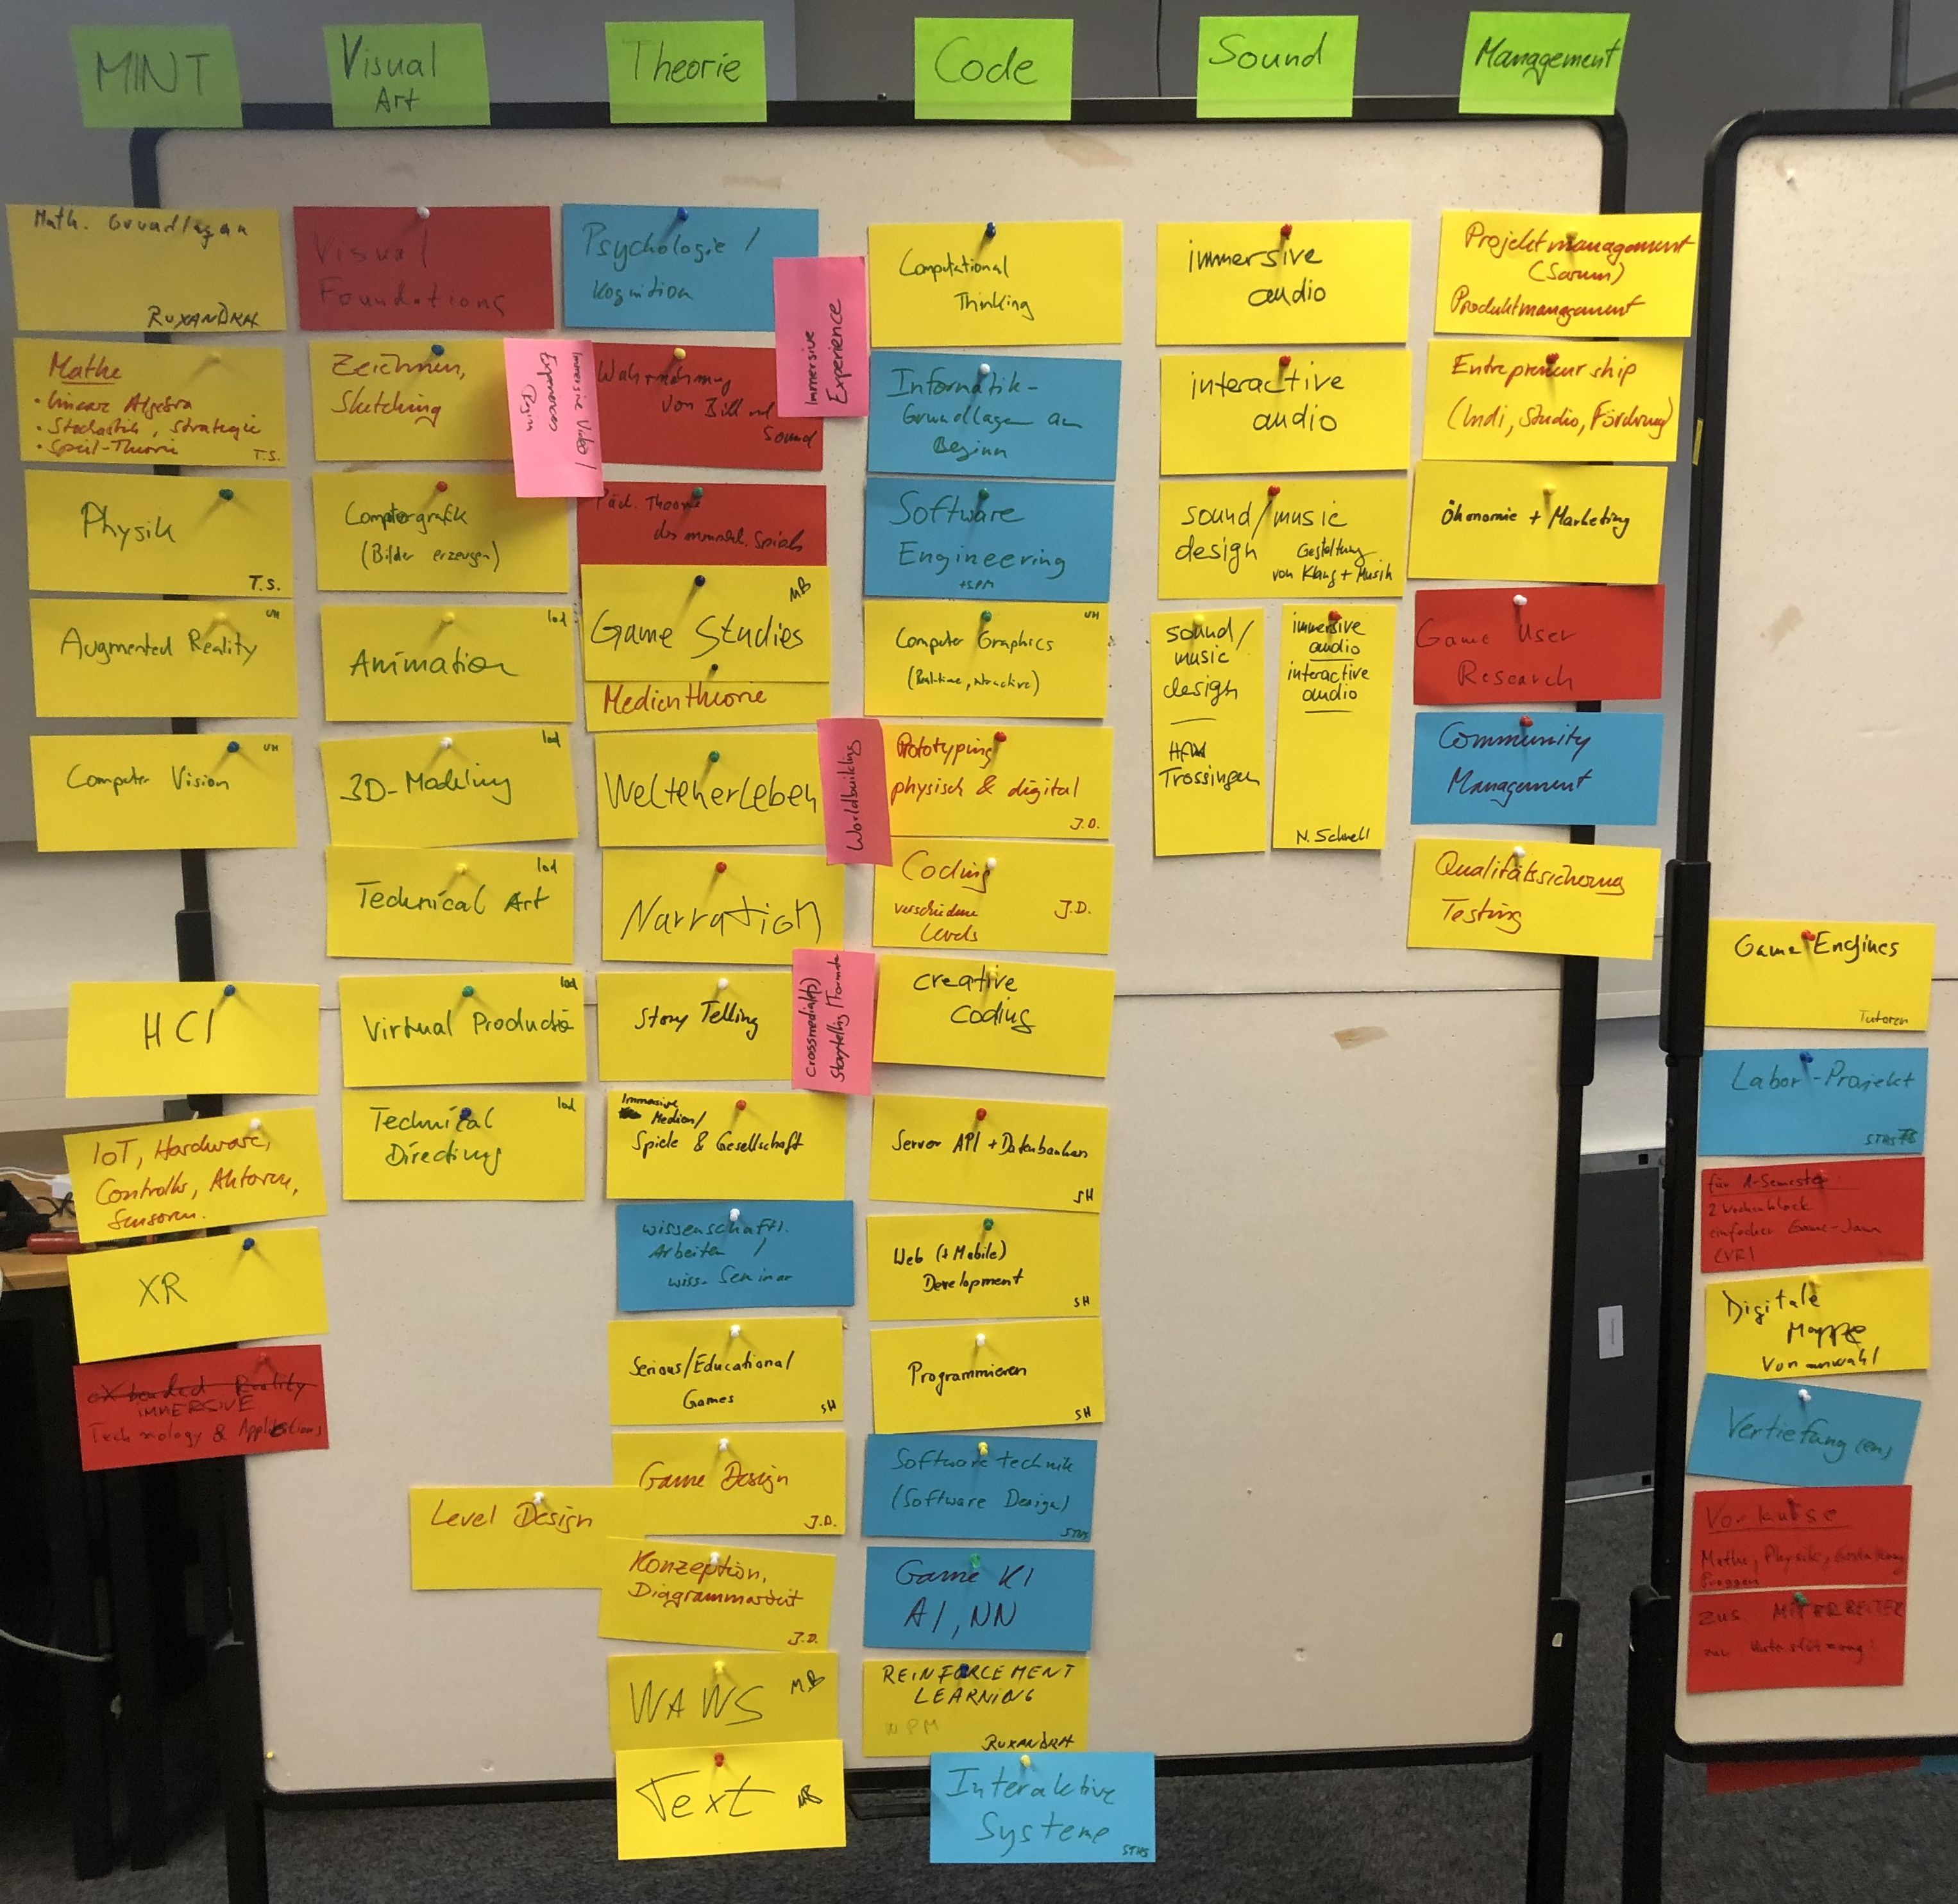 MINT
Visual
Art
Theorie
Code
Sound
Management
Math. Grundlagen
RUXANDRA
Mathe
• lineare Algebra
• Stochastik, Strategie
• Spiel-Theorie
T.S.
Physik
T.S.
Augmented Reality
UH
Computer Vision
UH
HCI
IoT, Hardware,
Controlls, Aktoren,
Sensoren.
XR
eXtended Reality
IMMERSIVE
Technology & Applications
Visual
Foundations
Zeichnen,
Sketching
Immersive Video /
Experience
Computergrafik
(Bilder erzeugen)
Animation
lad
3D-Modeling
lad
Technical Art
lad
Virtual Productio
lad
Technical
Directing
lad
Level Design
Psychologie /
Kognition
Immersive
Experience
Wahrnehmung
von Bild und
Sound
Päd. Theorie
des menschl. Spiels
Game Studies
MB
Medientheorie
Weltenerleben
Worldbuilding
Narration
Story Telling
Crossmedial(es)
Storytelling/Formate
Immersive
Medien/
Spiele & Gesellschaft
wissenschaftl.
Arbeiten /
wiss. Seminar
Serious/Educational
Games
SH
Game Design
J.D.
Konzeption,
Diagrammarbeit
J.D.
WAWS
MB
Text
MB
Computational
Thinking
Informatik-
Grundlagen am
Beginn
Software
Engineering
+SPM
Computer Graphics
(Real-time, interactive)
UH
Prototyping
physisch & digital
J.D.
Coding
verschiedene
Levels
J.D.
creative
coding
Server API + Datenbanken
SH
Web (+ Mobile)
Development
SH
Programmieren
SH
Softwaretechnik
(Software Design)
STHS
Game KI
AI, NN
REINFORCEMENT
LEARNING
WPM
RUXANDRA
Interaktive
Systeme
STHS
immersive
audio
interactive
audio
sound/music
design
Gestaltung
von Klang + Musik
sound/
music
design
Trossingen
immersive
audio
interactive
audio
N. Schnell
Projektmanagement
(Scrum)
Produktmanagement
Entrepreneurship
(Indi, Studio, Förderung)
Ökonomie + Marketing
Game User
Research
Community
Management
Qualitätssicherung
Testing
Game Engines
Tutoren
Labor-Projekt
für 1-Semester
2 Wochenblock
einfachen Game-Jam
(VR)
Digitale
Mappe
Vorauswahl
Vertiefung(en)
Vorkurse
Mathe, Physik, Gestaltung
zus. MITARBEITER
zur Unterstützung!